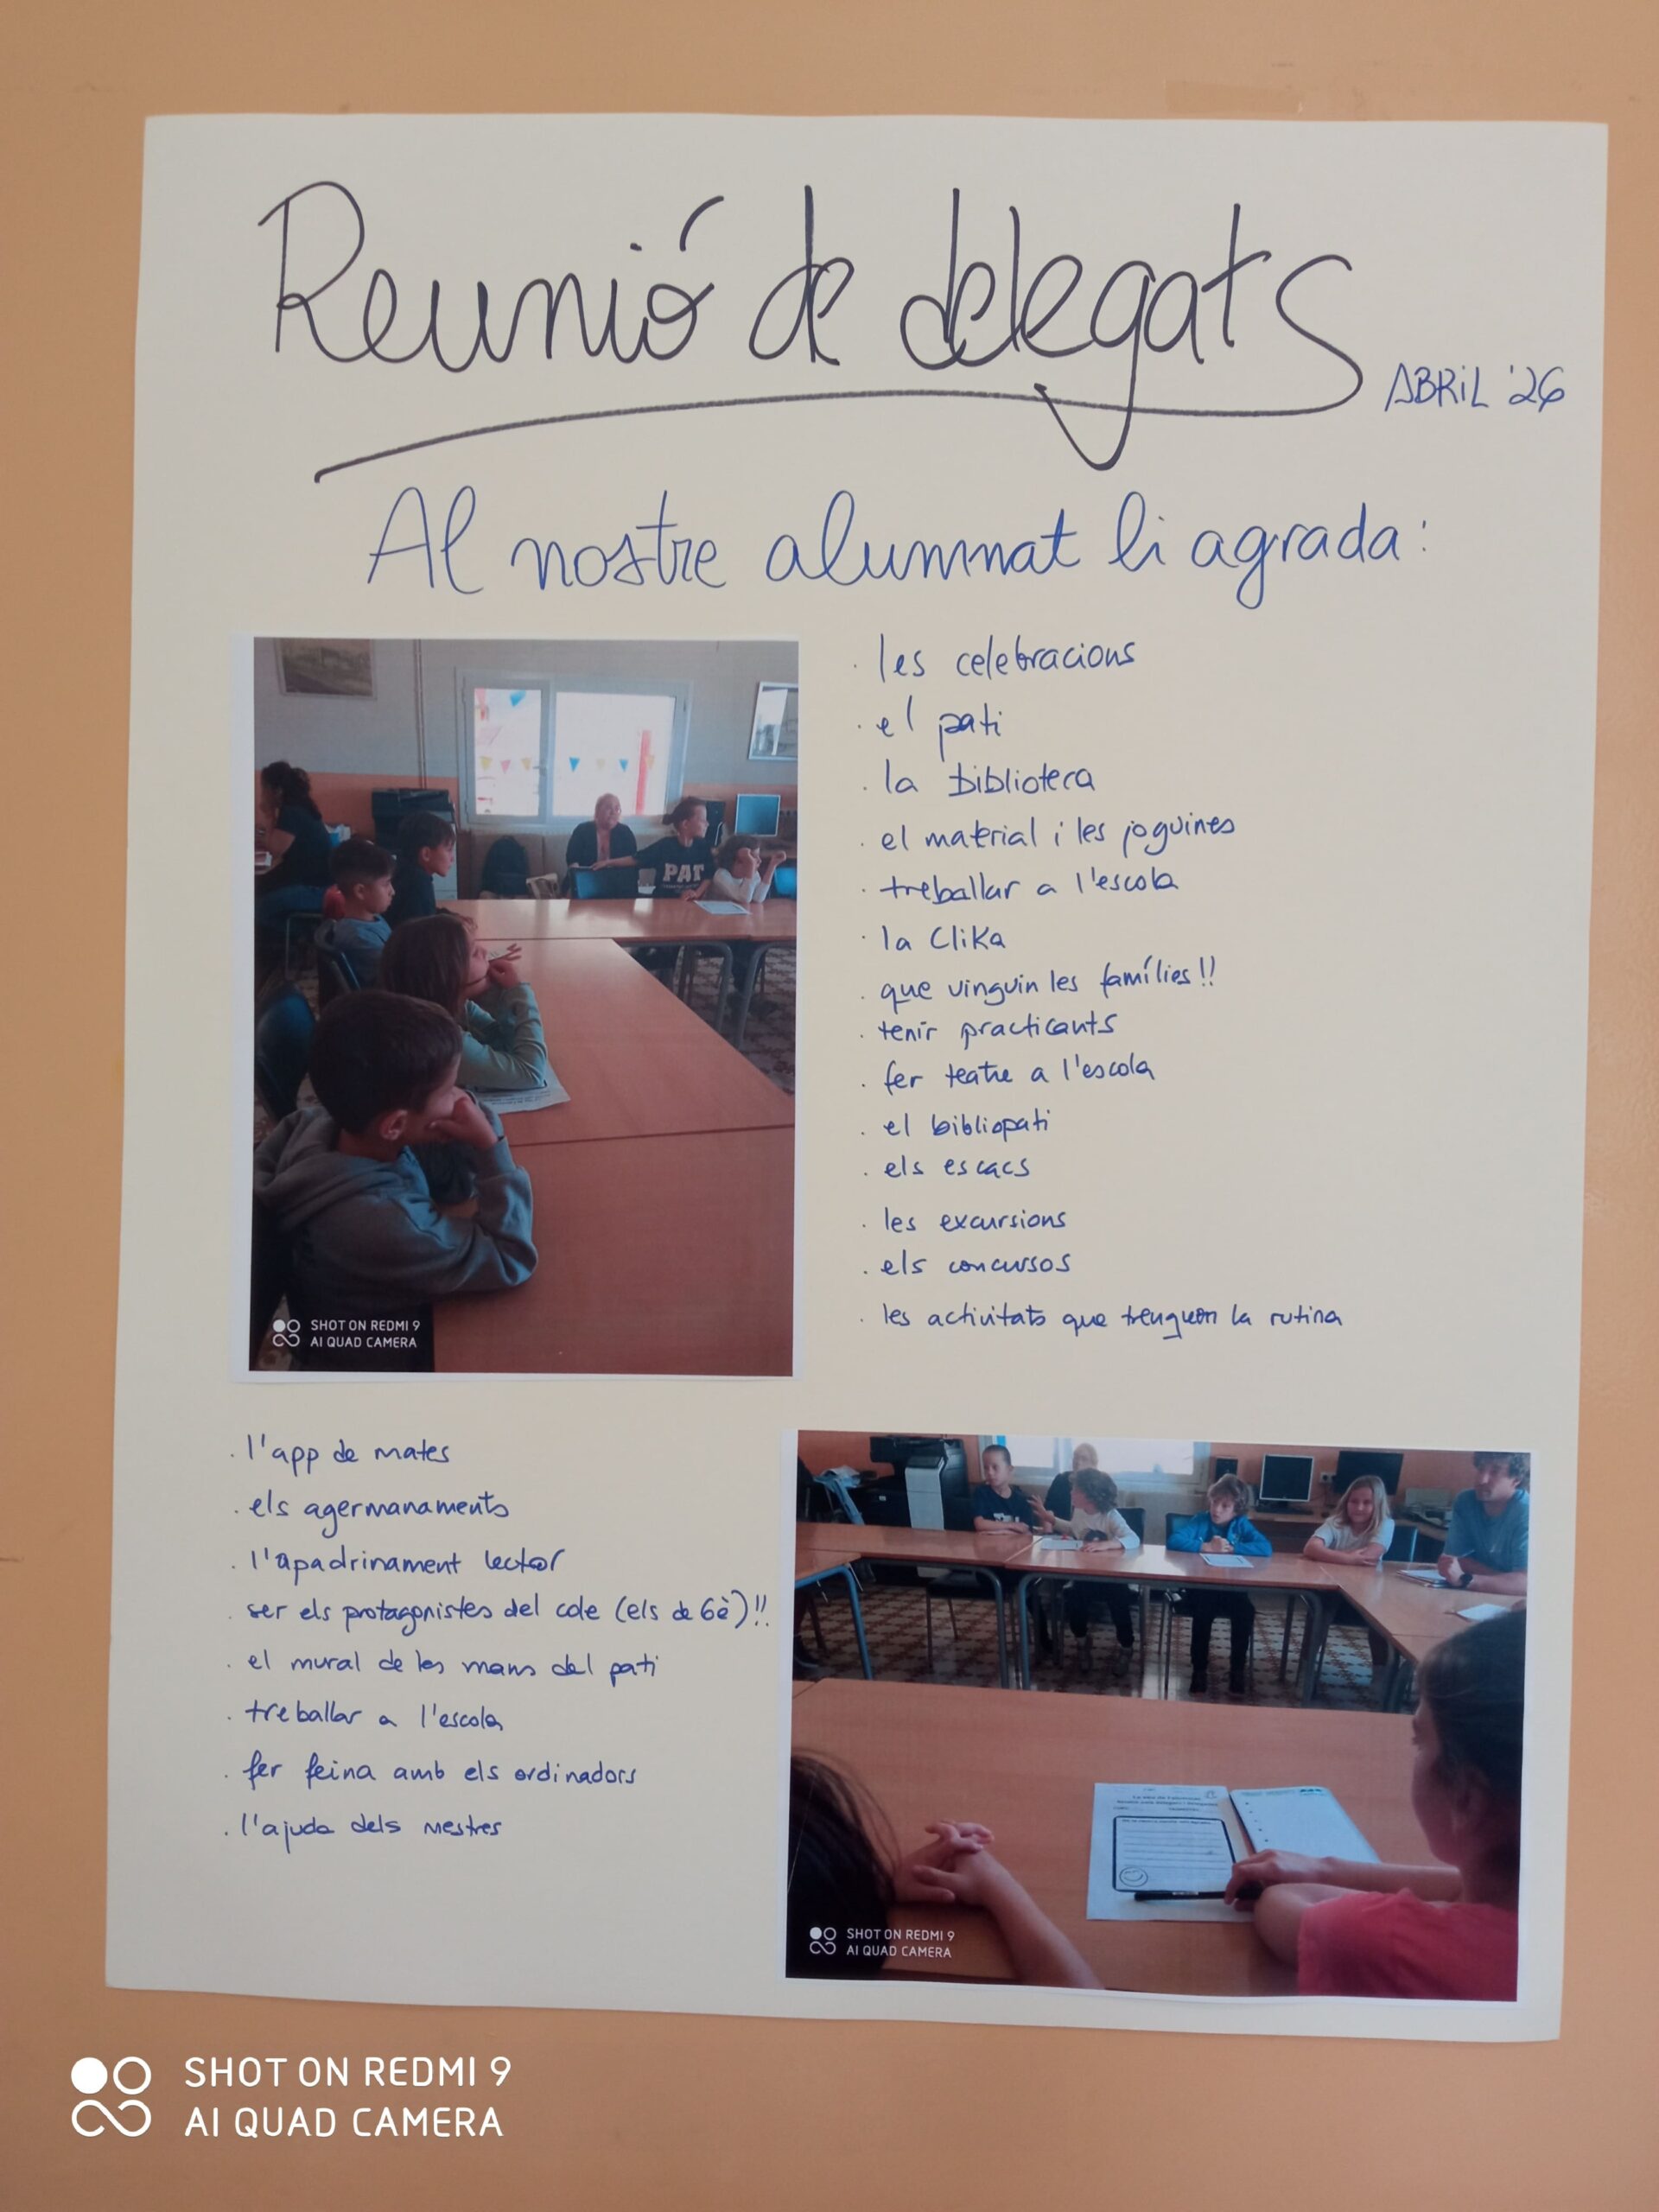 Reunió de delegats
ABRIL '26
Al nostre alumnat li agrada:
· les celebracions
· el pati
· la biblioteca
· el material i les joguines
· treballar a l'escola
· la Clika
· que vinguin les famílies!!
· tenir practicants
· fer teatre a l'escola
· el bibliopati
· els escacs
· les excursions
· els concursos
· les activitats que trenquen la rutina
PAT
SHOT ON REDMI 9
AI QUAD CAMERA
· l'app de mates
· els agermanaments
· l'apadrinament lector
· ser els protagonistes del cole (els de 6è)!!
· el mural de les mans del pati
· treballar a l'escola
· fer feina amb els ordinadors
· l'ajuda dels mestres
SHOT ON REDMI 9
AI QUAD CAMERA
SHOT ON REDMI 9
AI QUAD CAMERA